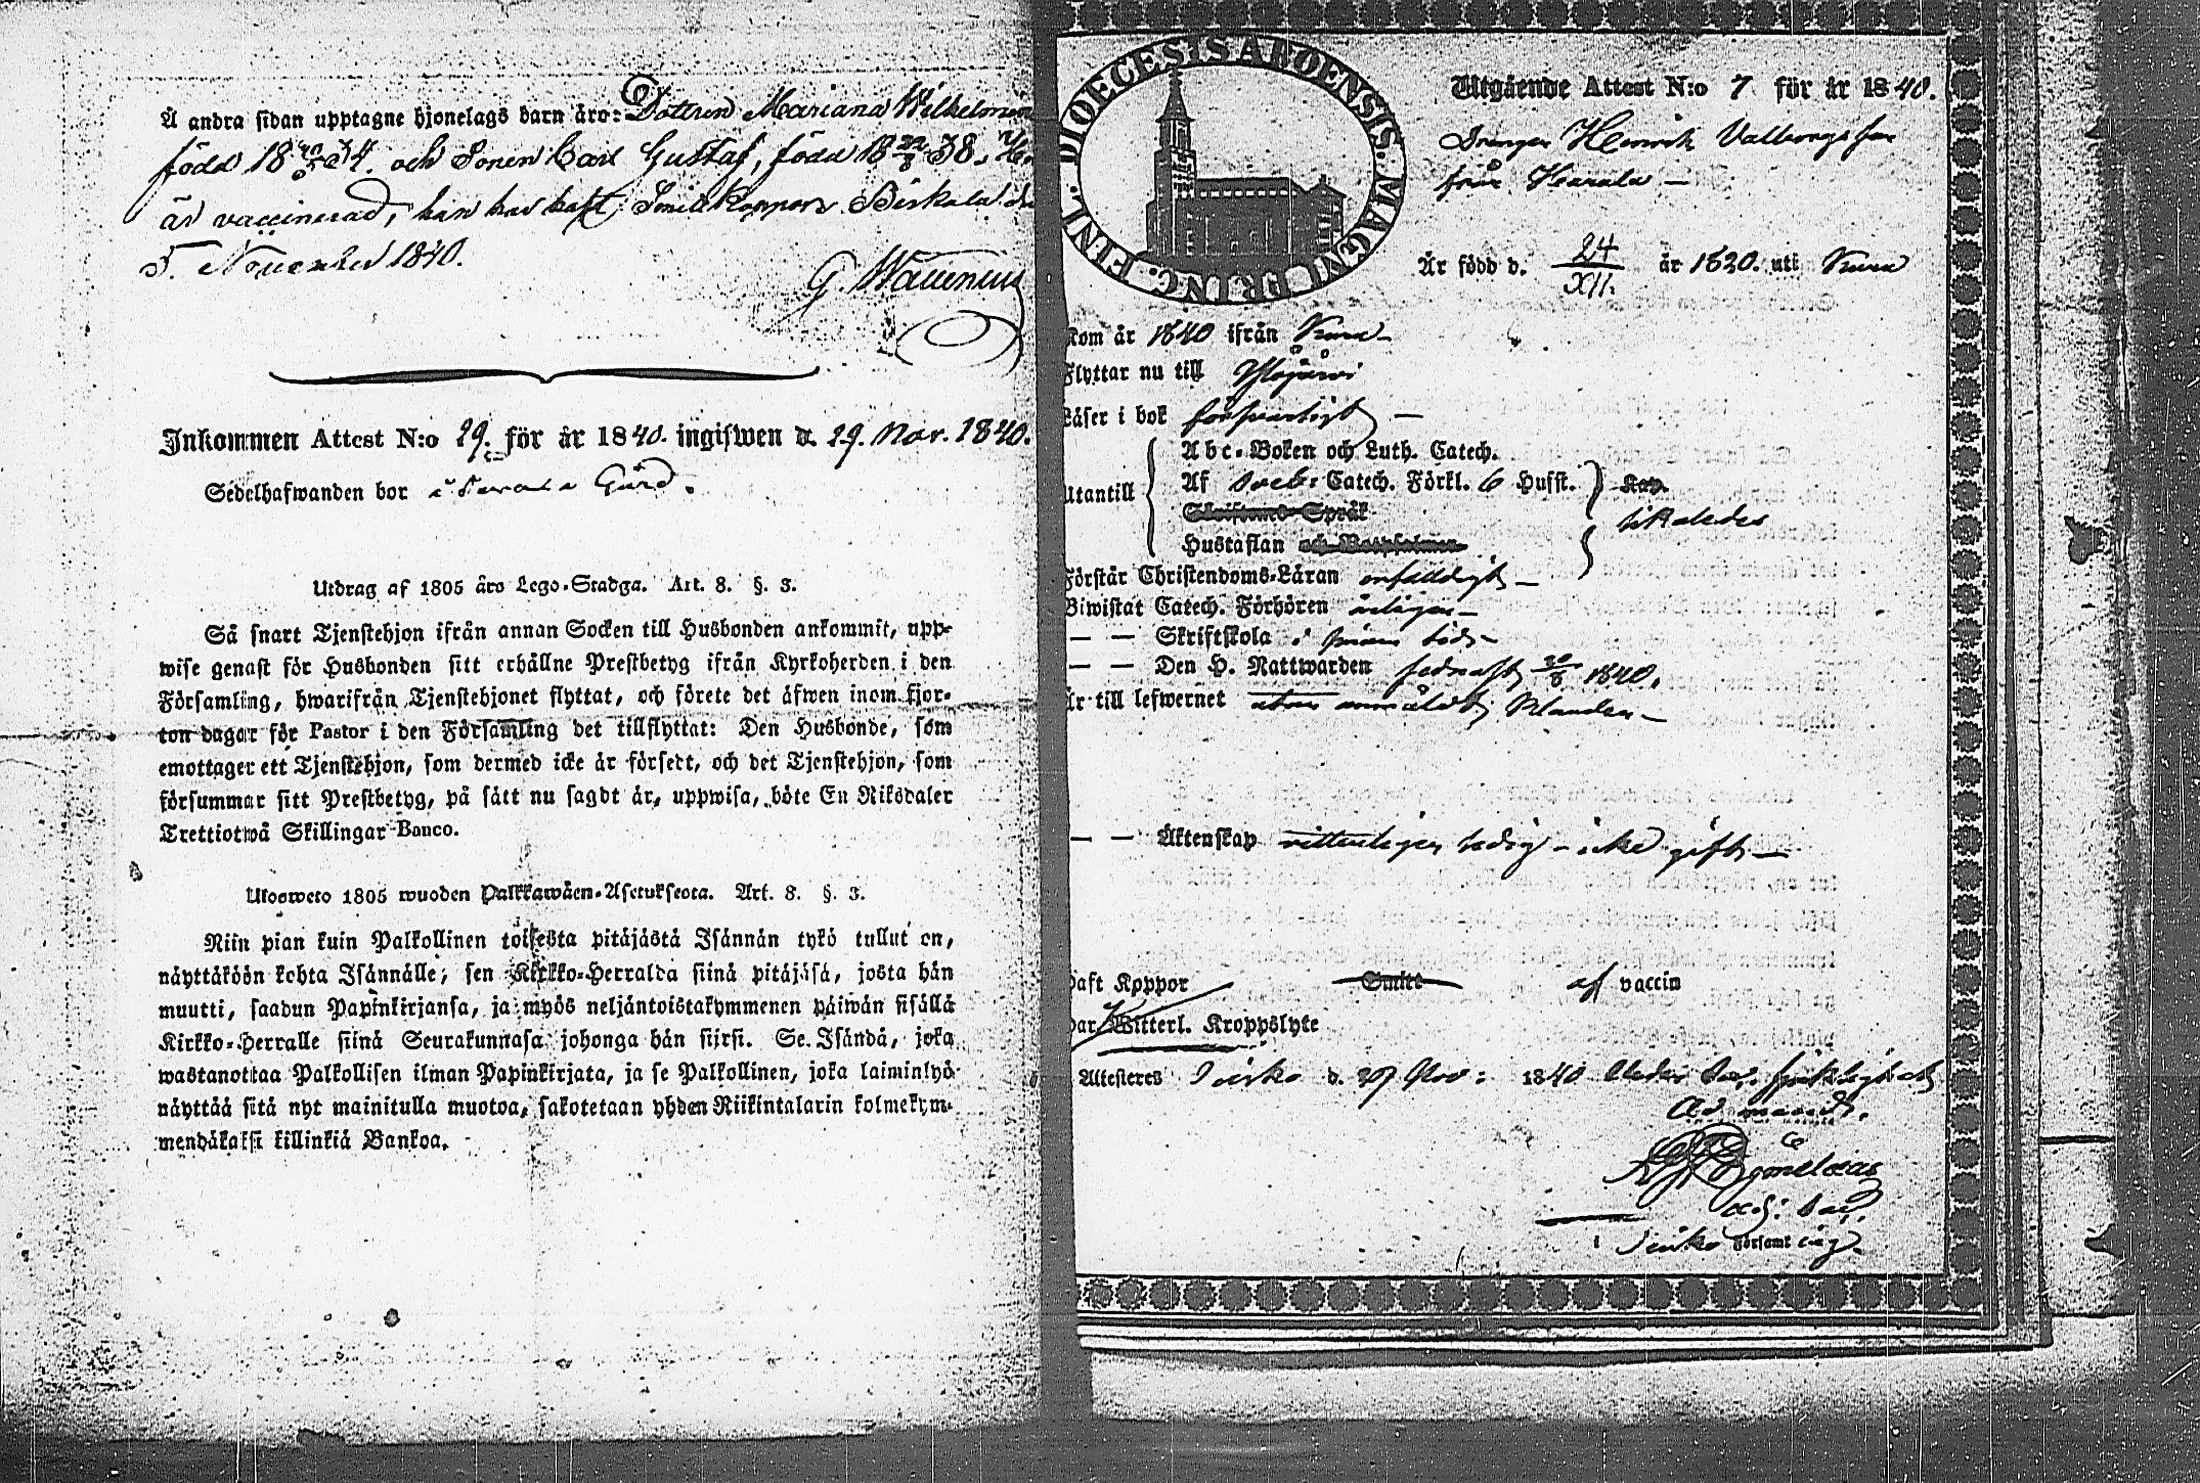 Å andra sidan upptagne hjonelags barn äro: Dottren Mariana Wilhelmina
född 18 20/5 34. och Sonen Carl Gustaf, född 18 22/8 38.
är vaccinerad, han har haft Smittkoppor. Birkala den
5. November 1840.
G. Wallenius
Inkommen Attest N:o 29. för år 1840. ingifwen d. 29. Nov. 1840.
Sedelhafwanden bor i Gård.
Utdrag af 1805 års Lego-Stadga. Art. 8. §. 3.
Så snart Tjenstehjon ifrån annan Socken till Husbonden ankommit, upp-
wise genast för Husbonden sitt erhållne Prestbetyg ifrån Kyrkoherden i den
Församling, hwarifrån Tjenstehjonet flyttat, och förete det äfwen inom fjor-
ton dagar för Pastor i den Församling det tillflyttat: Den Husbonde, som
emottager ett Tjenstehjon, som dermed icke är försedt, och det Tjenstehjon, som
försummar sitt Prestbetyg, på sätt nu sagdt är, uppwisa, böte En Riksdaler
Trettiotwå Skillingar Banco.
Ulosweto 1805 wuoden Palkkawäen-Asetuksesta. Art. 8. §. 3.
Niin pian kuin Palkollinen toisesta pitäjästä Isännän tykö tullut on,
näyttäköön kohta Isännälle, sen Kirkko-Herralda siinä pitäjäsä, josta hän
muutti, saadun Papinkirjansa, ja myös neljäntoistakymmenen päiwän sisällä
Kirkko-Herralle siinä Seurakunnasa johonga hän siirsi. Se Isändä, joka
wastanottaa Palkollisen ilman Papinkirjata, ja se Palkollinen, joka laiminlyö
näyttää sitä nyt mainitulla muotoa, sakotetaan yhden Riikintalarin kolmekym-
mendäkaksi killinkiä Bankoa.
DIOECESIS ABOENSIS. MAGNI PRINC. FINL.
Utgående Attest N:o 7 för år 1840.
Drengen Henrik Valborgsson
från Harala —
Är född d. 24/XII. år 1820. uti Kuru
Kom år 1840 ifrån Kuru
Flyttar nu till Ylöjärvi
Läser i bok försvarligt —
Utantill
Abc-Boken och Luth. Catech.
Af Sveb. Catech. Förkl. 6 Hufst.
Skriftenes Språk
Hustaflan och Botpsalmer
likaledes
Förstår Christendoms-Läran enfaldigt —
Biwistat Catech. Förhören årligen —
— — Skriftskola i sinom tid —
— — Den H. Nattwarden sednast 20/6 1840.
Är till lefwernet utan anmäldt klander —
— — Äktenskap vitterligen ledig – icke gift —
Haft Koppor Smitt af vaccin
Har Witterl. Kroppslyte
Attesteras Teisko d. 27 Nov: 1840
Ad mand.
i Teisko Församling.